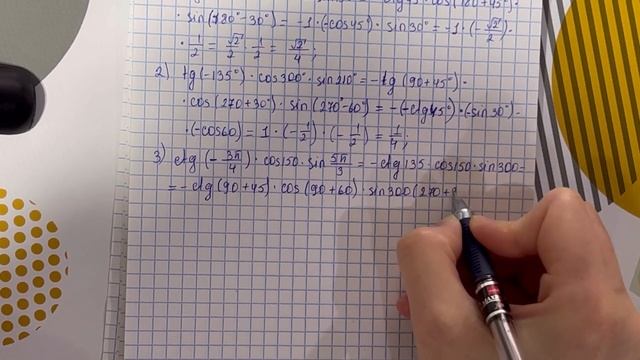 · sin(180°-30°) = -1·(-cos45°)·sin30° = -1·(-√2/2)·
· 1/2 = √2/2 · 1/2 = √2/4;
2) tg(-135°)·cos300°·sin210° = -tg(90+45°)·
·cos(270+30°)·sin(270°-60°) = -(-ctg45°)·(-sin30°)·
·(-cos60) = 1·(-1/2)·(-1/2) = 1/4;
3) ctg(-3π/4)·cos150·sin 5π/3 = -ctg135·cos150·sin300=
= -ctg(90+45)·cos(90+60)·sin300(270+